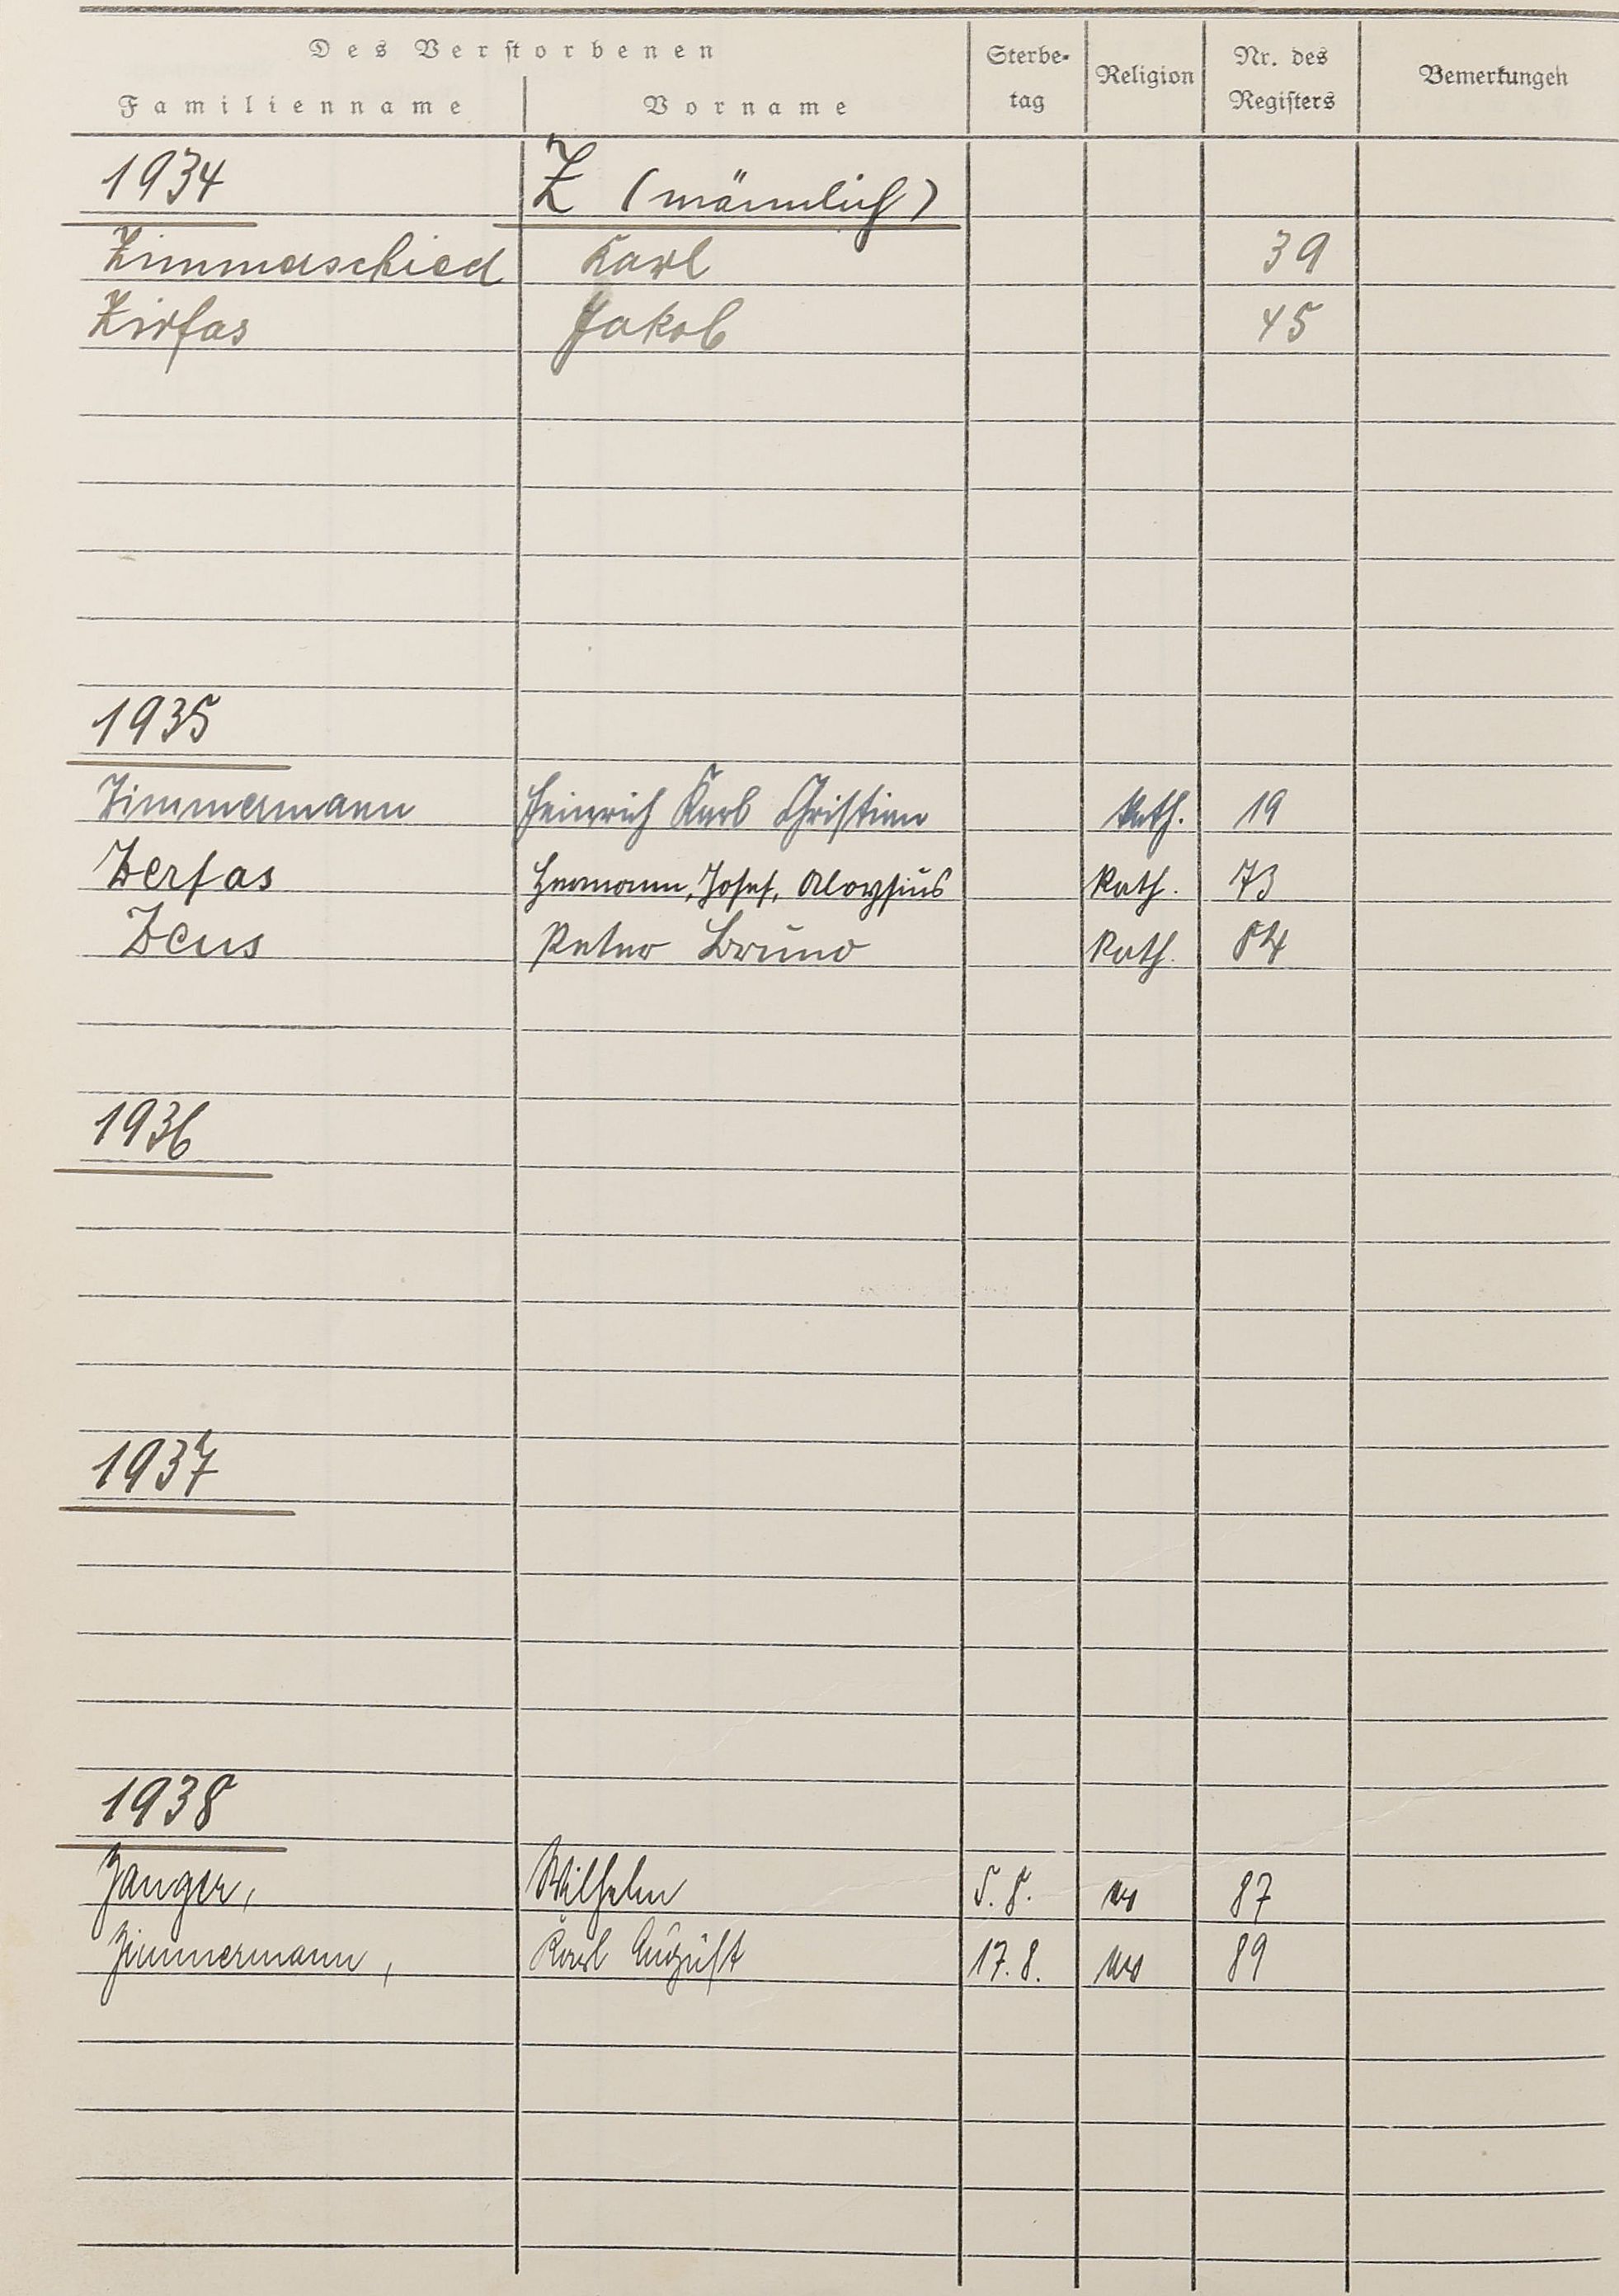 Des Verstorbenen
Familienname Vorname Sterbe-tag Religion Nr. des Registers Bemerkungen
1934 Z (männlich)
Zimmerschied Karl 39
Zirfas Jakob 45
1935
Zimmermann Heinrich Karl Christian Kath. 19
Zerfas Hermann, Josef, Aloysius Kath. 73
Zeus Peter Bruno Kath. 84
1936
1937
1938
Zanger, Wilhelm 5.8. 87
Zimmermann, Karl August 17.8. 89